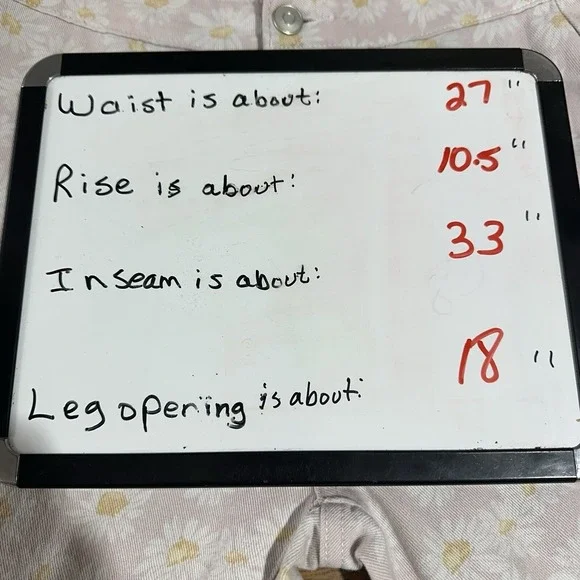 Waist is about: 27 "
Rise is about: 10.5 "
Inseam is about: 33 "
Leg opening is about: 18 "